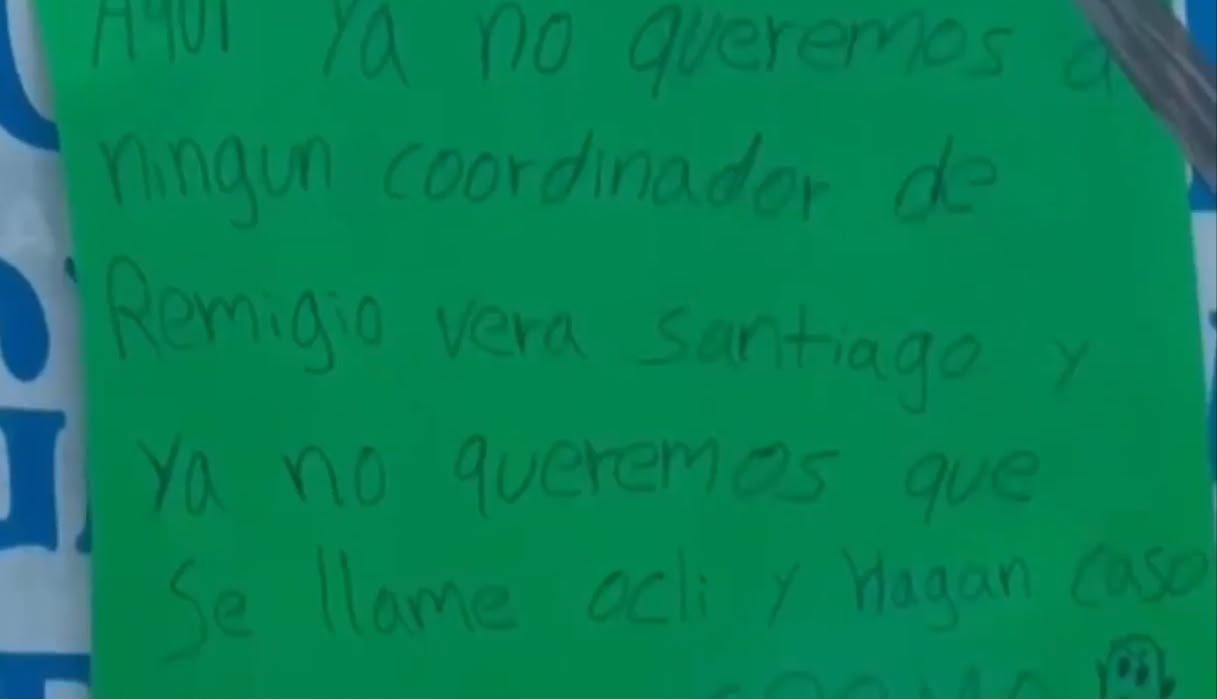 Aquí ya no queremos a
ningun coordinador de
Remigio vera santiago y
ya no queremos que
Se llame ocli y Hagan caso